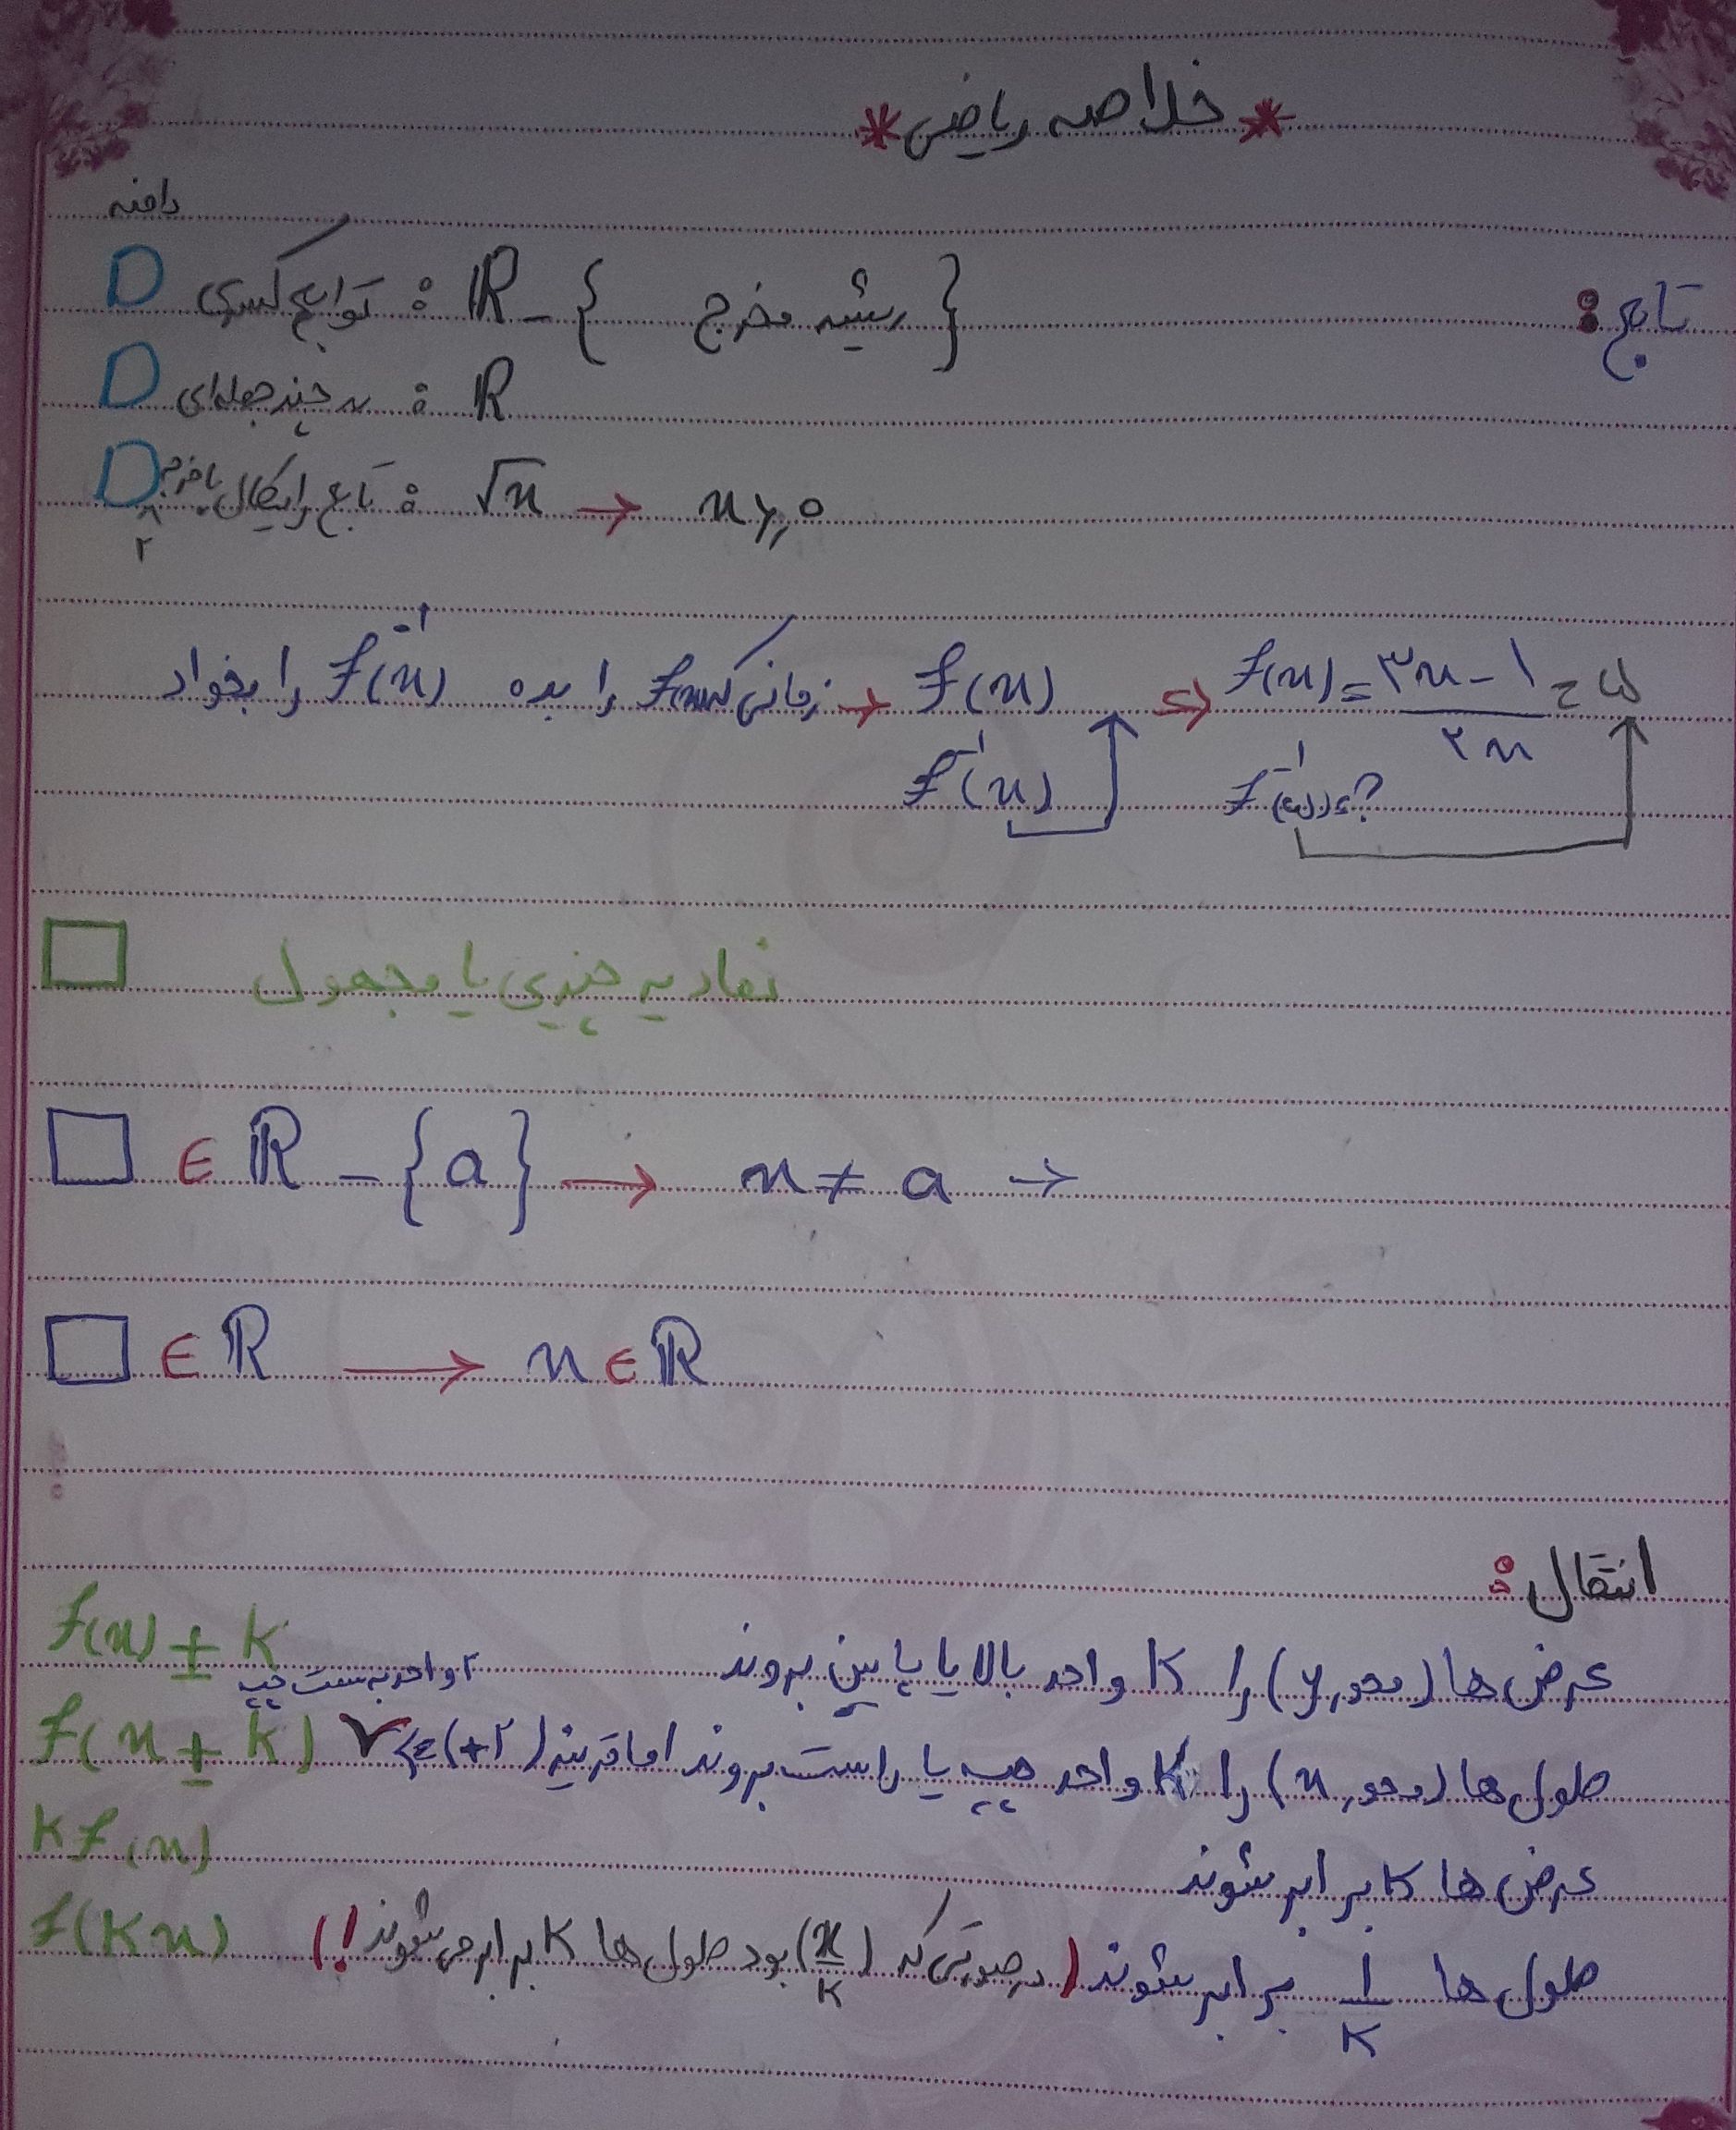 * خلاصه ریاضی *
تابع:
دامنه
D توابع کسری : ℝ - { ریشه مخرج }
D ‌ چندجمله‌ای : ℝ
D تابع رادیکال با فرجه ۲ : √x → x ≥ 0
زمانی که f(x) را بده f⁻¹(x) را بخواد → f(x) ⇒ f(x) = ۳x-۱ / ۲x = ۵
f⁻¹(x) f⁻¹(۵) = ?
□ نماد یه چیزی یا مجهول
□ ∈ ℝ - {a} → x ≠ a →
□ ∈ ℝ → x ∈ ℝ
انتقال:
f(x) ± k عرض ها (محور y) را k واحد بالا یا پایین بروند
۲ واحد به سمت چپ
f(x ± k) طول ها (محور x) را k واحد چپ یا راست بروند اما قرینه (+۲) =>
k f(x) عرض ها k برابر شوند
f(kx) طول ها 1/k برابر شوند (در صورتی که (x/k) بود طول ها k برابر می شوند!)